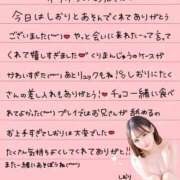 今日はしおりとあそんでくれてありがとう
ございました(˶ᵔ ᵕ ᵔ˶) やっと会いに来れたって言って
くれて嬉しすぎました くりまんじゅうのケースが
かわいすぎた あとリュックもね！！ しおりにたく
さんの差し入れもありがとう！ チョコ一緒に食べ
れてよかった プレイではお兄さんが舐めるの
お上手すぎてしおりは大変でした
たくさん気持ちよくしてくれてありがと！！
また一緒にあそぼうね
しおり